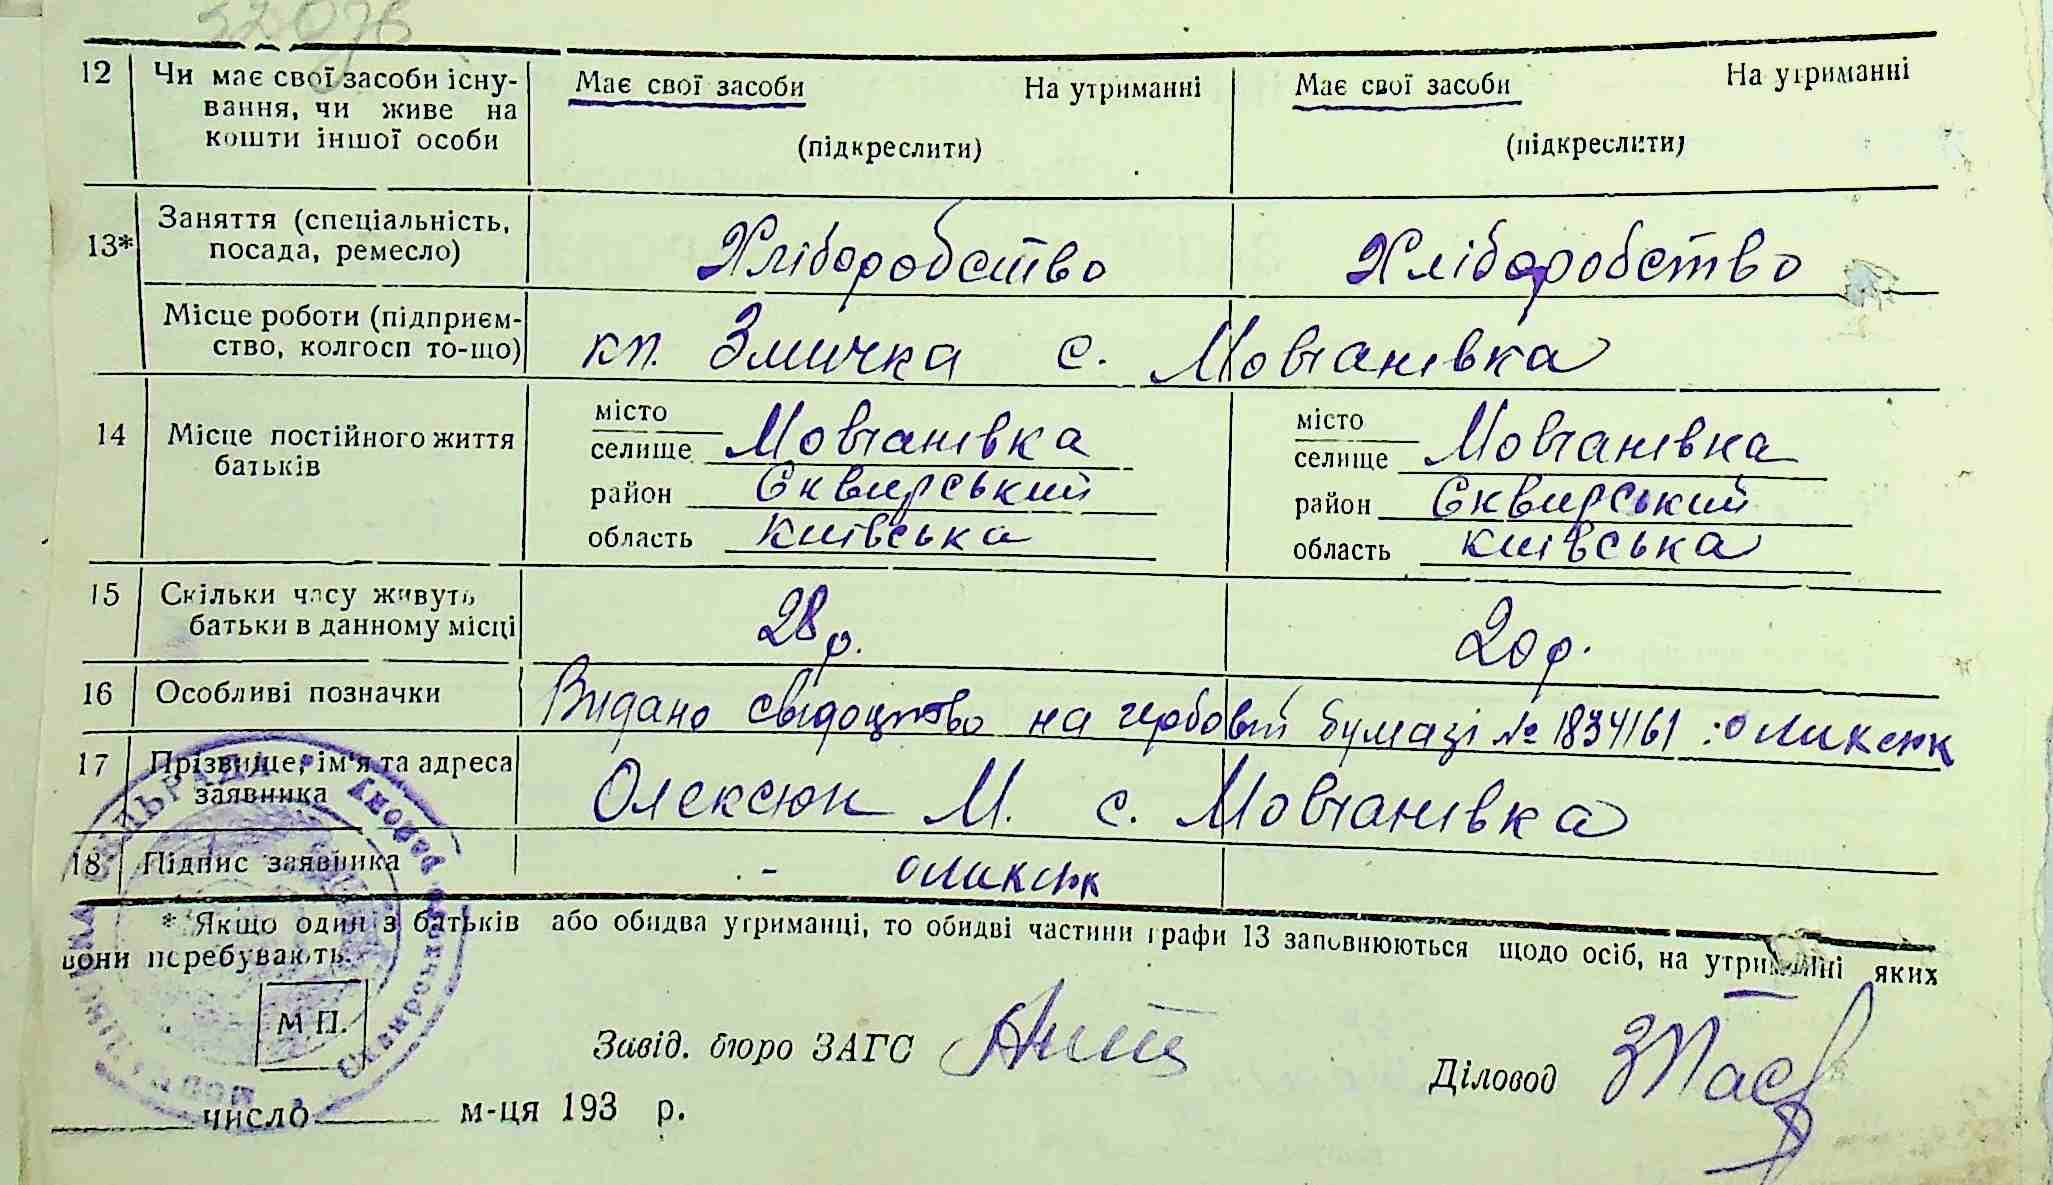 12 Чи має свої засоби існу- Має свої засоби На утриманні Має свої засоби На утриманні
вання, чи живе на
кошти іншої особи (підкреслити) (підкреслити)
13* Заняття (спеціальність,
посада, ремесло) Хліборобство Хліборобство
Місце роботи (підприєм-
ство, колгосп то-що) кп. Змичка с. Мовчанівка
14 Місце постійного життя
батьків
місто місто
селище Мовчанівка селище Мовчанівка
район Сквирський район Сквирський
область Київська область Київська
15 Скільки часу живуть
батьки в данному місці 28 р. 20 р.
16 Особливі позначки Видано свідоцтво на гербовій бумазі № 1834161 : оликсюк
17 Прізвище, ім'я та адреса
заявника Олексюк М. с. Мовчанівка
18 Підпис заявника - оликсюк
* Якщо один з батьків або обидва утриманці, то обидві частини графи 13 заповнюються щодо осіб, на утриманні яких
вони перебувають.
М.П.
Завід. бюро ЗАГС
Діловод
число м-ця 193 р.